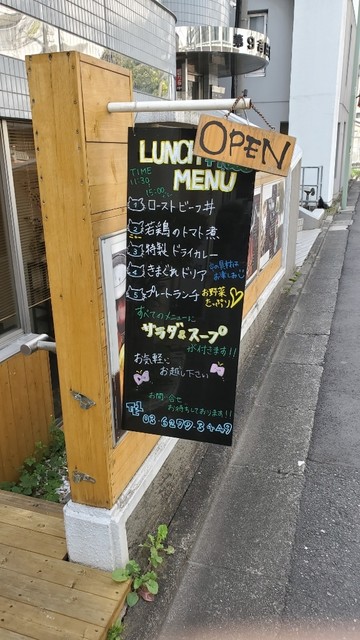 第9
OPEN
LUNCH TIME
MENU
TIME
11:30
15:00
1 ローストビーフ丼
2 若鶏のトマト煮
3 特製ドライカレー
4 きまぐれドリア
5 プレートランチ
お楽しみ
お野菜
たっぷり
すべてのメニューに
サラダ&スープ
が付きます!!
お気軽に
お越し下さい
お問い合せ
お待ちしております!!